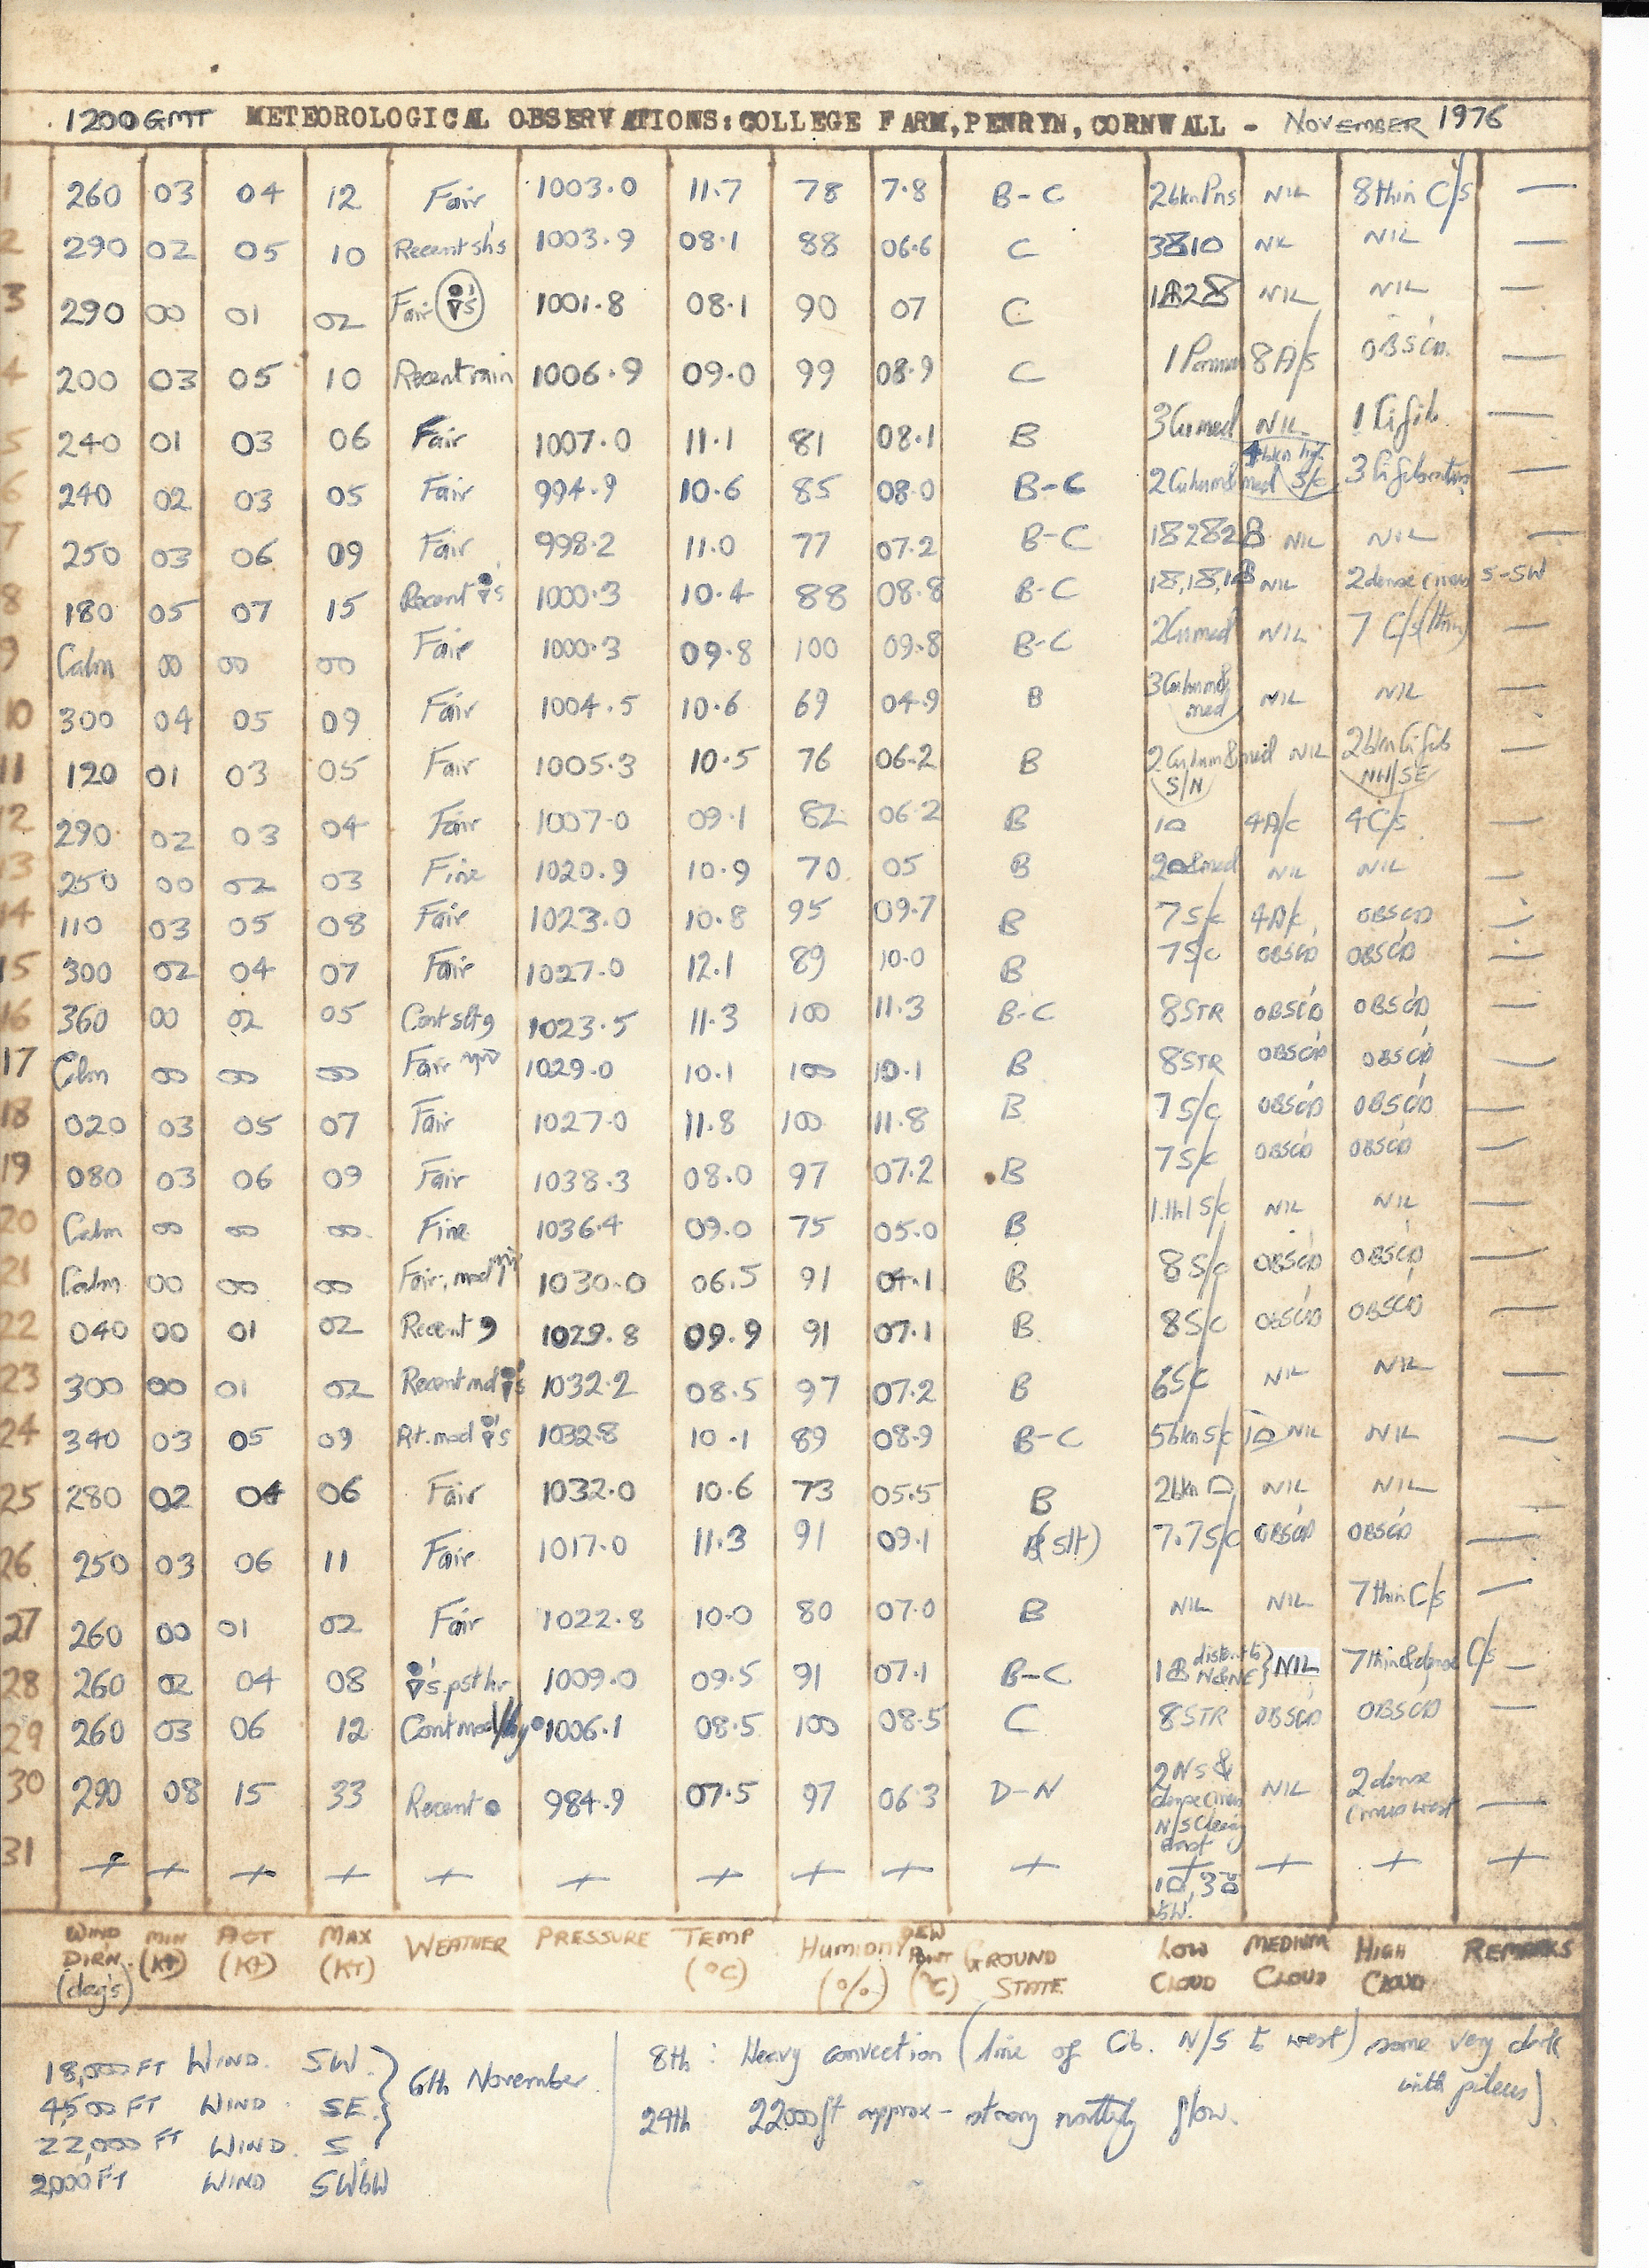 1200 GMT METEOROLOGICAL OBSERVATIONS: COLLEGE FARM, PENRYN, CORNWALL - NOVEMBER 1976
1 260 03 04 12 Fair 1003.0 11.7 78 7.8 B-C 2bkn NIL 8 thin C/s —
2 290 02 05 10 Recent sh's 1003.9 08.1 88 06.6 C NIL —
3 290 00 01 02 Fair 1001.8 08.1 90 07 C NIL NIL —
4 200 03 05 10 Recent rain 1006.9 09.0 99 08.9 C 1 8 A/s OBSC'D. —
5 240 01 03 06 Fair 1007.0 11.1 81 08.1 B 3 Cu med NIL 1 Ci fib. —
6 240 02 03 05 Fair 994.9 10.6 85 08.0 B-C 2 Cu hum & med 4 bkn S/c 3 Ci —
7 250 03 06 09 Fair 998.2 11.0 77 07.2 B-C NIL NIL —
8 180 05 07 15 Recent 1000.3 10.4 88 08.8 B-C NIL 2 dense cirrus S-SW
9 Calm 00 00 00 Fair 1000.3 09.8 100 09.8 B-C 2 Cu med NIL 7 C/s (thin) —
10 300 04 05 09 Fair 1004.5 10.6 69 04.9 B 3 Cu hum & med NIL NIL —
11 120 01 03 05 Fair 1005.3 10.5 76 06.2 B 2 Cu hum & med S/N NIL 2 bkn Ci fib NW/SE —
12 290 02 03 04 Fair 1007.0 09.1 82 06.2 B 1 4 A/c 4 C/s —
13 250 00 02 03 Fine 1020.9 10.9 70 05 B 2 & med NIL NIL —
14 110 03 05 08 Fair 1023.0 10.8 95 09.7 B 7 S/c 4 A/c OBSC'D —
15 300 02 04 07 Fair 1027.0 12.1 89 10.0 B 7 S/c OBSC'D OBSC'D —
16 360 00 02 05 Cont slt 9 1023.5 11.3 100 11.3 B-C 8 STR OBSC'D OBSC'D —
17 Calm 00 00 00 Fair 1029.0 10.1 100 10.1 B 8 STR OBSC'D OBSC'D —
18 020 03 05 07 Fair 1027.0 11.8 100 11.8 B 7 S/c OBSC'D OBSC'D —
19 080 03 06 09 Fair 1038.3 08.0 97 07.2 B 7 S/c OBSC'D OBSC'D —
20 Calm 00 00 00 Fine 1036.4 09.0 75 05.0 B S/c NIL NIL —
21 Calm 00 00 00 Fair, mod 1030.0 06.5 91 04.1 B 8 S/c OBSC'D OBSC'D —
22 040 00 01 02 Recent 9 1029.8 09.9 91 07.1 B 8 S/c OBSC'D OBSC'D —
23 300 00 01 02 Recent mod 1032.2 08.5 97 07.2 B 6 S/c NIL NIL —
24 340 03 05 09 Rt. mod 1032.8 10.1 89 08.9 B-C 5 bkn S/c 1 NIL NIL —
25 280 02 04 06 Fair 1032.0 10.6 73 05.5 B 2 bkn NIL NIL —
26 250 03 06 11 Fair 1017.0 11.3 91 09.1 (slt) 7.7 S/c OBSC'D OBSC'D —
27 260 00 01 02 Fair 1022.8 10.0 80 07.0 B NIL NIL 7 thin C/s —
28 260 02 04 08 's pst hr 1009.0 09.5 91 07.1 B-C 1 dist. to N & NE } NIL 7 thin & dense C/s —
29 260 03 06 12 Cont mod/hvy 1006.1 08.5 100 08.5 C 8 STR OBSC'D OBSC'D —
30 290 08 15 33 Recent 984.9 07.5 97 06.3 D-N 2 Ns & dense cirrus N/S clearing east NIL 2 dense cirrus west —
31 + + + + + + + + + + + + + +
1 , 3 SW.
WIND DIRN. (deg's) MIN (Kt) ACT (Kt) MAX (KT) WEATHER PRESSURE TEMP (°C) HUMIDITY (%) DEW POINT (°C) GROUND STATE LOW CLOUD MEDIUM CLOUD HIGH CLOUD REMARKS
18,000 FT WIND. SW.
4,500 FT WIND. SE. } 6th November.
22,000 FT WIND. S
2,000 FT WIND SWbW
8th: Heavy convection (line of Cb. N/S to west) some very dark
with pileus).
29th 22000 ft approx - strong northerly flow.